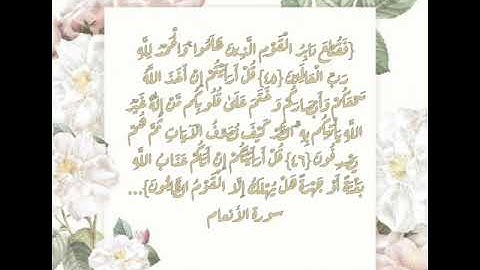 {فَقُطِعَ دَابِرُ الْقَوْمِ الَّذِينَ ظَلَمُوا ۚ وَالْحَمْدُ لِلَّهِ
رَبِّ الْعَالَمِينَ (٤٥) قُلْ أَرَأَيْتُمْ إِنْ أَخَذَ اللَّهُ
سَمْعَكُمْ وَأَبْصَارَكُمْ وَخَتَمَ عَلَىٰ قُلُوبِكُم مَّنْ إِلَٰهٌ غَيْرُ
اللَّهِ يَأْتِيكُم بِهِ ۗ انظُرْ كَيْفَ نُصَرِّفُ الْآيَاتِ ثُمَّ هُمْ
يَصْدِفُونَ (٤٦) قُلْ أَرَأَيْتَكُمْ إِنْ أَتَاكُمْ عَذَابُ اللَّهِ
بَغْتَةً أَوْ جَهْرَةً هَلْ يُهْلَكُ إِلَّا الْقَوْمُ الظَّالِمُونَ}...
سورة الأنعام